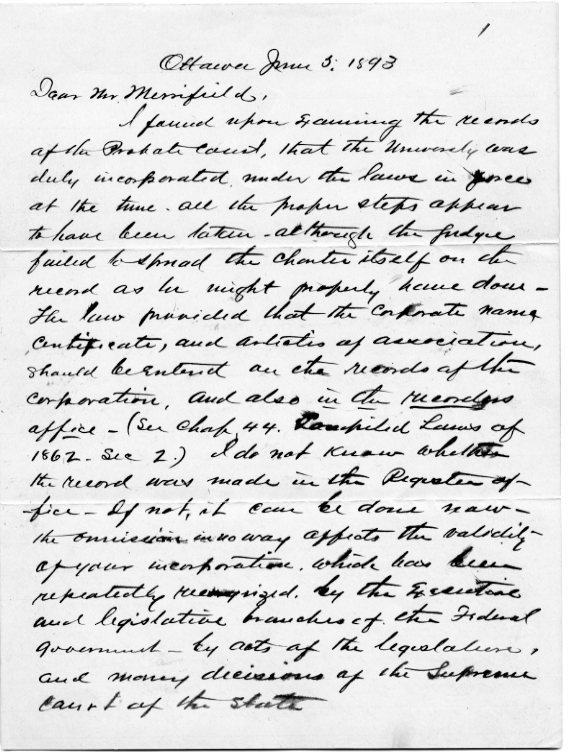 1
Ottawa June 3. 1893
Dear Mr. Merrifield,
I found upon Examining the records
of the Probate Court, that the University was
duly incorporated under the laws in force
at the time. all the proper steps appear
to have been taken - although the Judge
failed to spread the Charter itself on the
record as he might properly have done -
The law provided that the Corporate name,
Centificate, and articles of association,
should be Entered on the records of the
Corporation, and also in the recorders
office - (See Chap. 44. Compiled Laws of
1862 - Sec 2.) I do not know whether
the record was made in the Register of-
fice - If not, it can be done now -
the omission in no way affects the validity
of your incorporation, which has been
repeatedly recognized, by the Executive
and legislative branches of the Federal
government - by acts of the legislature,
and many decisions of the Supreme
Court of the State